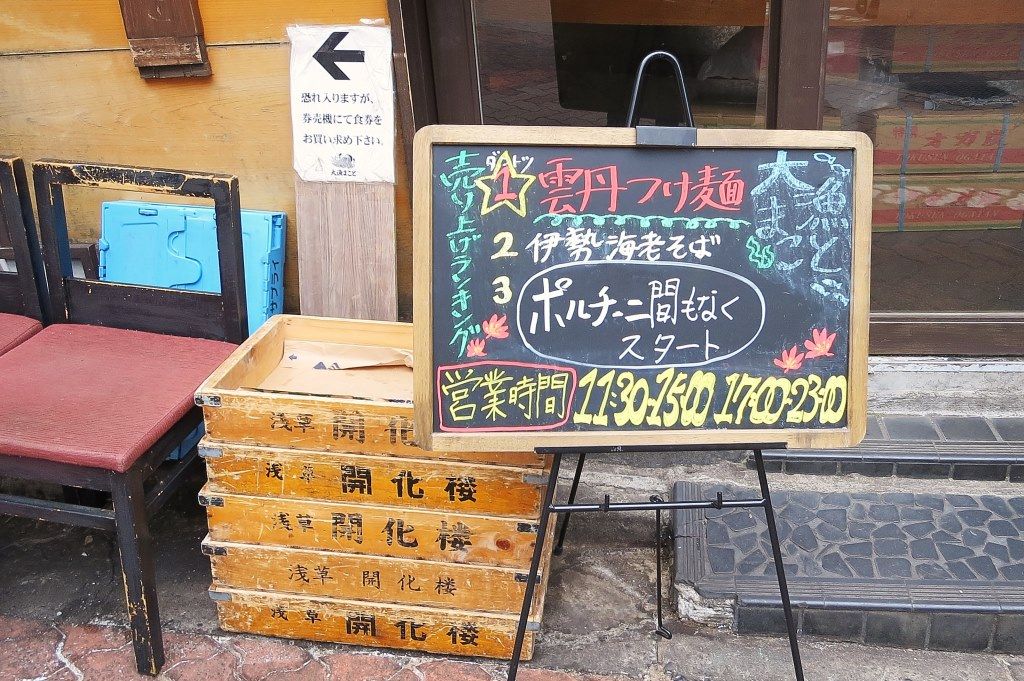 恐れ入りますが、
券売機にて食券を
お買い求め下さい。
売り上げランキング
ダントツ
1 雲丹つけ麺
2 伊勢海老そば
3
ポルチーニ間もなく
スタート
大漁
まこと
営業時間 11:30-15:00 17:00-23:00
浅草 開化
浅草 開化楼
浅草 開化楼
浅草 開化楼
浅草 開化楼